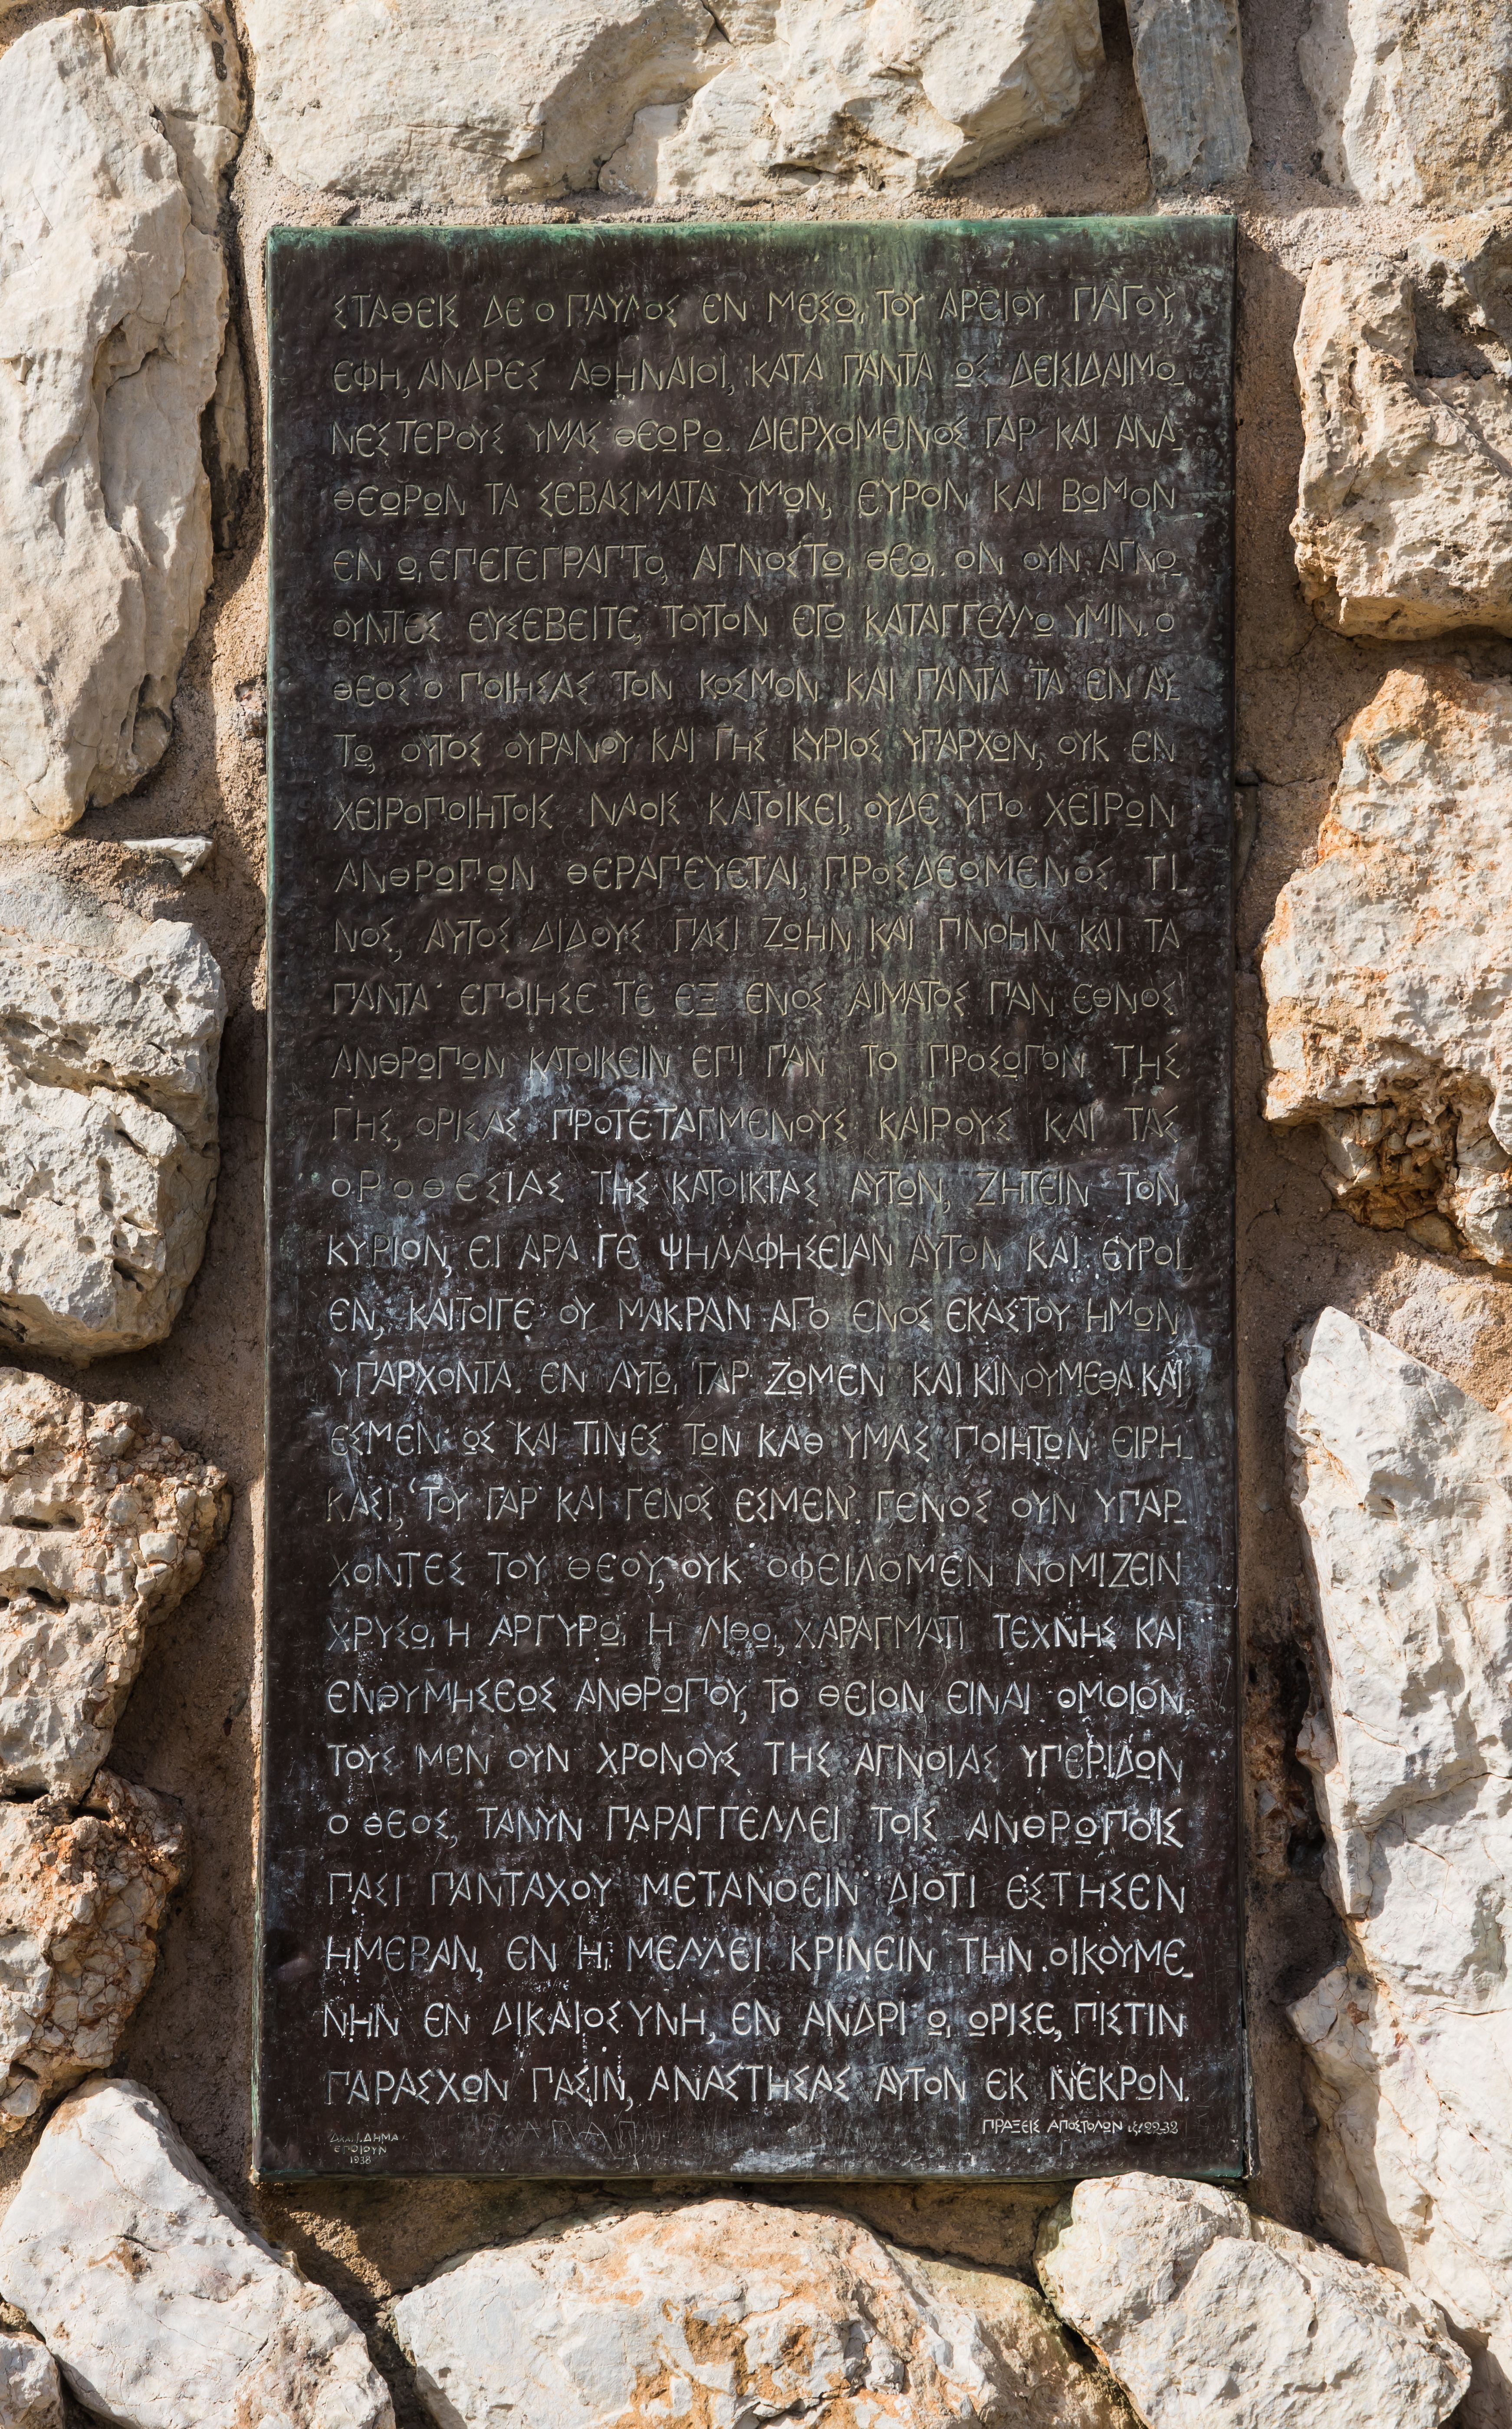 ΣΤΑΘΕΙΣ ΔΕ Ο ΠΑΥΛΟΣ ΕΝ ΜΕΣΩ, ΤΟΥ ΑΡΕΙΟΥ ΠΑΓΟΥ,
ΕΦΗ, ΑΝΔΡΕΣ ΑΘΗΝΑΙΟΙ, ΚΑΤΑ ΠΑΝΤΑ ΩΣ ΔΕΙΣΙΔΑΙΜΟ-
ΝΕΣΤΕΡΟΥΣ ΥΜΑΣ ΘΕΩΡΩ. ΔΙΕΡΧΟΜΕΝΟΣ ΓΑΡ ΚΑΙ ΑΝΑ-
ΘΕΩΡΩΝ ΤΑ ΣΕΒΑΣΜΑΤΑ ΥΜΩΝ, ΕΥΡΟΝ ΚΑΙ ΒΩΜΟΝ
ΕΝ Ω, ΕΠΕΓΕΓΡΑΠΤΟ, ΑΓΝΩΣΤΩ, ΘΕΩ,. ΟΝ ΟΥΝ ΑΓΝΟ-
ΟΥΝΤΕΣ ΕΥΣΕΒΕΙΤΕ, ΤΟΥΤΟΝ ΕΓΩ ΚΑΤΑΓΓΕΛΛΩ ΥΜΙΝ. Ο
ΘΕΟΣ Ο ΠΟΙΗΣΑΣ ΤΟΝ ΚΟΣΜΟΝ ΚΑΙ ΠΑΝΤΑ ΤΑ ΕΝ ΑΥ-
ΤΩ, ΟΥΤΟΣ ΟΥΡΑΝΟΥ ΚΑΙ ΓΗΣ ΚΥΡΙΟΣ ΥΠΑΡΧΩΝ, ΟΥΚ ΕΝ
ΧΕΙΡΟΠΟΙΗΤΟΙΣ ΝΑΟΙΣ ΚΑΤΟΙΚΕΙ, ΟΥΔΕ ΥΠΟ ΧΕΙΡΩΝ
ΑΝΘΡΩΠΩΝ ΘΕΡΑΠΕΥΕΤΑΙ, ΠΡΟΣΔΕΟΜΕΝΟΣ ΤΙ-
ΝΟΣ, ΑΥΤΟΣ ΔΙΔΟΥΣ ΠΑΣΙ ΖΩΗΝ ΚΑΙ ΠΝΟΗΝ ΚΑΙ ΤΑ
ΠΑΝΤΑ ΕΠΟΙΗΣΕ ΤΕ ΕΞ ΕΝΟΣ ΑΙΜΑΤΟΣ ΠΑΝ ΕΘΝΟΣ
ΑΝΘΡΩΠΩΝ ΚΑΤΟΙΚΕΙΝ ΕΠΙ ΠΑΝ ΤΟ ΠΡΟΣΩΠΟΝ ΤΗΣ
ΓΗΣ, ΟΡΙΣΑΣ ΠΡΟΤΕΤΑΓΜΕΝΟΥΣ ΚΑΙΡΟΥΣ ΚΑΙ ΤΑΣ
ΟΡΟΘΕΣΙΑΣ ΤΗΣ ΚΑΤΟΙΚΙΑΣ ΑΥΤΩΝ, ΖΗΤΕΙΝ ΤΟΝ
ΚΥΡΙΟΝ, ΕΙ ΑΡΑ ΓΕ ΨΗΛΑΦΗΣΕΙΑΝ ΑΥΤΟΝ ΚΑΙ ΕΥΡΟΙ-
ΕΝ, ΚΑΙΤΟΙΓΕ ΟΥ ΜΑΚΡΑΝ ΑΠΟ ΕΝΟΣ ΕΚΑΣΤΟΥ ΗΜΩΝ
ΥΠΑΡΧΟΝΤΑ. ΕΝ ΑΥΤΩ, ΓΑΡ ΖΩΜΕΝ ΚΑΙ ΚΙΝΟΥΜΕΘΑ ΚΑΙ
ΕΣΜΕΝ. ΩΣ ΚΑΙ ΤΙΝΕΣ ΤΩΝ ΚΑΘ ΥΜΑΣ ΠΟΙΗΤΩΝ ΕΙΡΗ-
ΚΑΣΙ, ‘ΤΟΥ ΓΑΡ ΚΑΙ ΓΕΝΟΣ ΕΣΜΕΝ’. ΓΕΝΟΣ ΟΥΝ ΥΠΑΡ-
ΧΟΝΤΕΣ ΤΟΥ ΘΕΟΥ, ΟΥΚ ΟΦΕΙΛΟΜΕΝ ΝΟΜΙΖΕΙΝ
ΧΡΥΣΩ, Η ΑΡΓΥΡΩ, Η ΛΙΘΩ, ΧΑΡΑΓΜΑΤΙ ΤΕΧΝΗΣ ΚΑΙ
ΕΝΘΥΜΗΣΕΩΣ ΑΝΘΡΩΠΟΥ, ΤΟ ΘΕΙΟΝ ΕΙΝΑΙ ΟΜΟΙΟΝ.
ΤΟΥΣ ΜΕΝ ΟΥΝ ΧΡΟΝΟΥΣ ΤΗΣ ΑΓΝΟΙΑΣ ΥΠΕΡΙΔΩΝ
Ο ΘΕΟΣ, ΤΑΝΥΝ ΠΑΡΑΓΓΕΛΛΕΙ ΤΟΙΣ ΑΝΘΡΩΠΟΙΣ
ΠΑΣΙ ΠΑΝΤΑΧΟΥ ΜΕΤΑΝΟΕΙΝ ΔΙΟΤΙ ΕΣΤΗΣΕΝ
ΗΜΕΡΑΝ, ΕΝ Η, ΜΕΛΛΕΙ ΚΡΙΝΕΙΝ ΤΗΝ ΟΙΚΟΥΜΕ-
ΝΗΝ ΕΝ ΔΙΚΑΙΟΣΥΝΗ, ΕΝ ΑΝΔΡΙ Ω, ΩΡΙΣΕ, ΠΙΣΤΙΝ
ΠΑΡΑΣΧΩΝ ΠΑΣΙΝ, ΑΝΑΣΤΗΣΑΣ ΑΥΤΟΝ ΕΚ ΝΕΚΡΩΝ.
ΠΡΑΞΕΙΣ ΑΠΟΣΤΟΛΩΝ ιζ' 22-32
ΔΗΜΑ
ΕΠΟΙΟΥΝ
1938